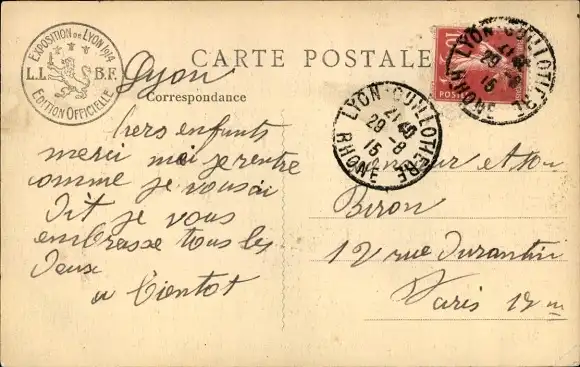 EXPOSITION DE LYON 1914
L.L. B.F.
EDITION OFFICIELLE
CARTE POSTALE
Correspondance
Lyon
chers enfants
merci moi je rentre
comme je vous ai
dit je vous
embrasse tous les
deux
a bientot
LYON-GUILLOTIERE
21 40
29 - 8
15
RHONE
LYON-GUILLOTIERE
29
15
RHONE
10
Monsieur et
Biron
12 rue Durantin
Paris